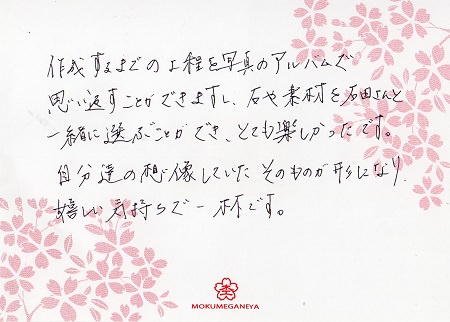 作成するまでの工程を写真のアルバムで
思い返すことができますし、石や素材を石田さんと
一緒に選ぶことができ、とても楽しかったです。
自分達の想像していたそのものが形になり、
嬉しい気持ちで一杯です。
MOKUMEGANEYA